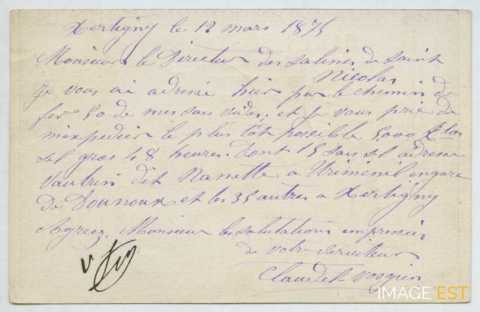 Xertigny le 12 mars 1875
Monsieur le Directeur des salines de Saint
Nicolas
Je vous ai adressé hier par le chemin de
fer 50 de mes sacs vides, et je vous prie de
m'expédier le plus tôt possible 5000 Kilos
sel gros de 8 heures. dont 15 sacs sel adresse
Vautrin dit Nanette à Uriménil en gare
de Dounoux et les 35 autres à Xertigny
Agréez, Monsieur les salutations empressées
de votre serviteur
Claudel
IMAGE'EST